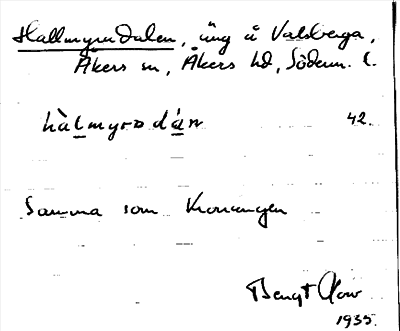 Hallmyradalen, äng å Valsberga,
Åkers sn, Åkers hd, Söderm. l.
hàlmyrodán 42.
Samma som Kronängen
Bengt
1935.